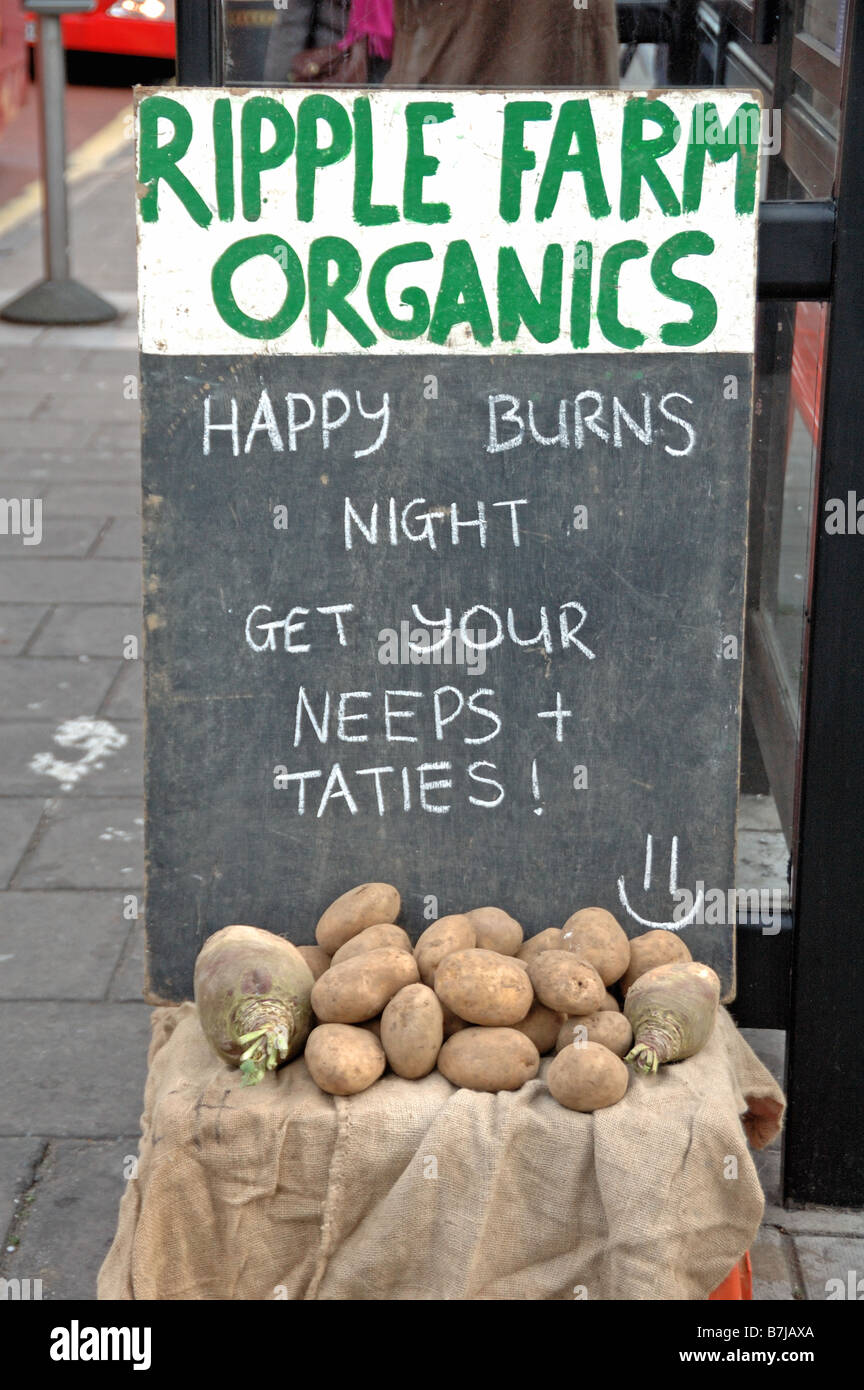 RIPPLE FARM
ORGANICS
HAPPY BURNS
NIGHT
GET YOUR
NEEPS +
TATIES!
alamy
Image ID: B7JAXA
www.alamy.com